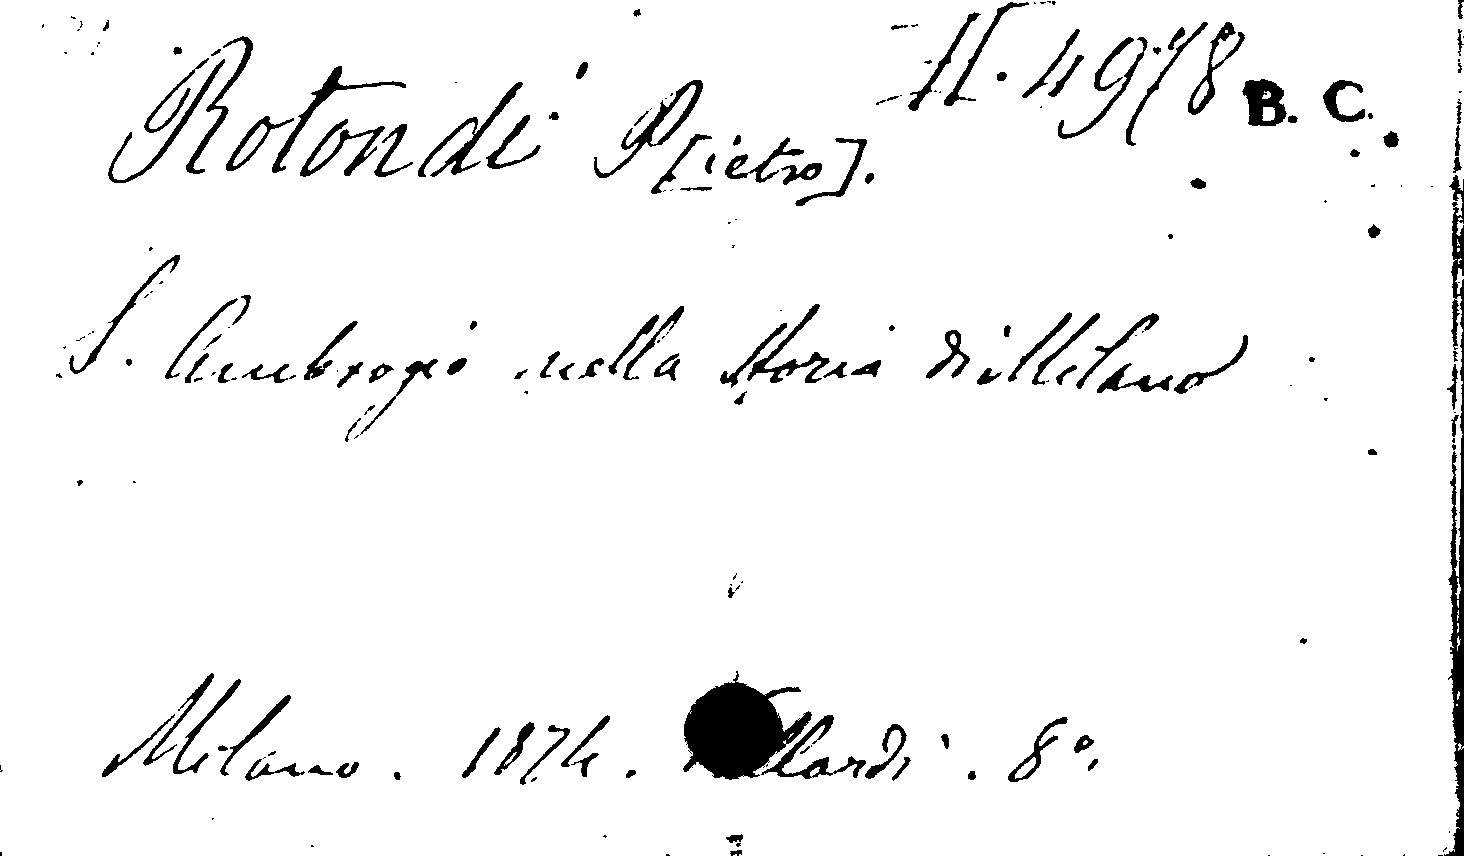 II. 4978 B. C.
Rotondi P[ietro].
S. Ambrogio nella storia di Milano
Milano. 1874. 8°.